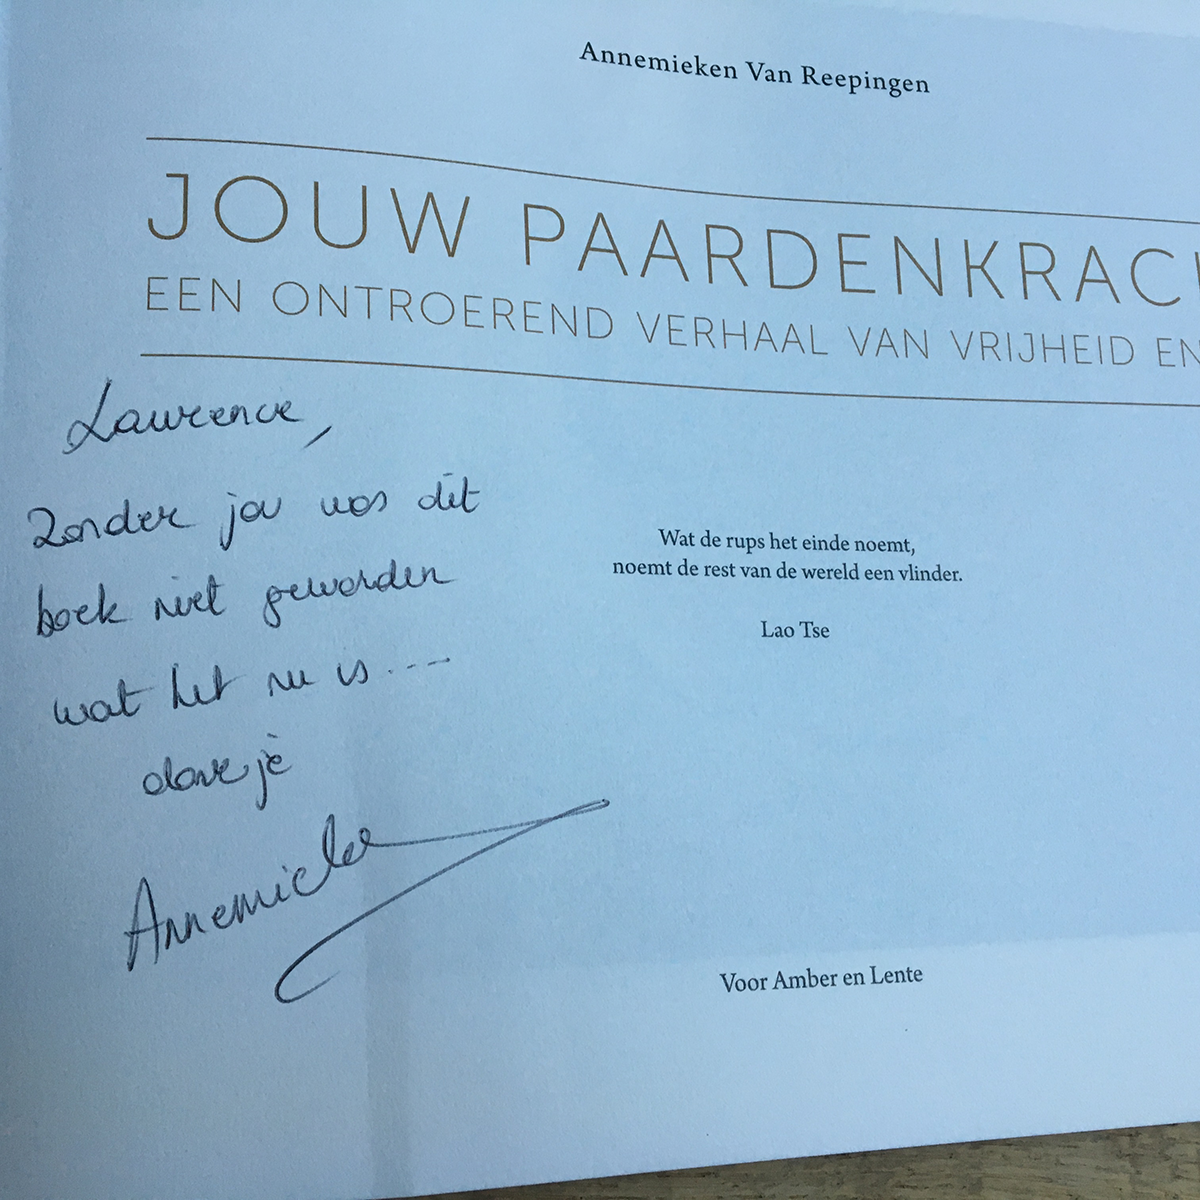 Annemieken Van Reepingen
JOUW PAARDENKRAC
EEN ONTROEREND VERHAAL VAN VRIJHEID EN
Lawrence,
Zonder jou was dit
boek niet geworden
wat het nu is ....
dankje
Annemieke
Wat de rups het einde noemt,
noemt de rest van de wereld een vlinder.
Lao Tse
Voor Amber en Lente